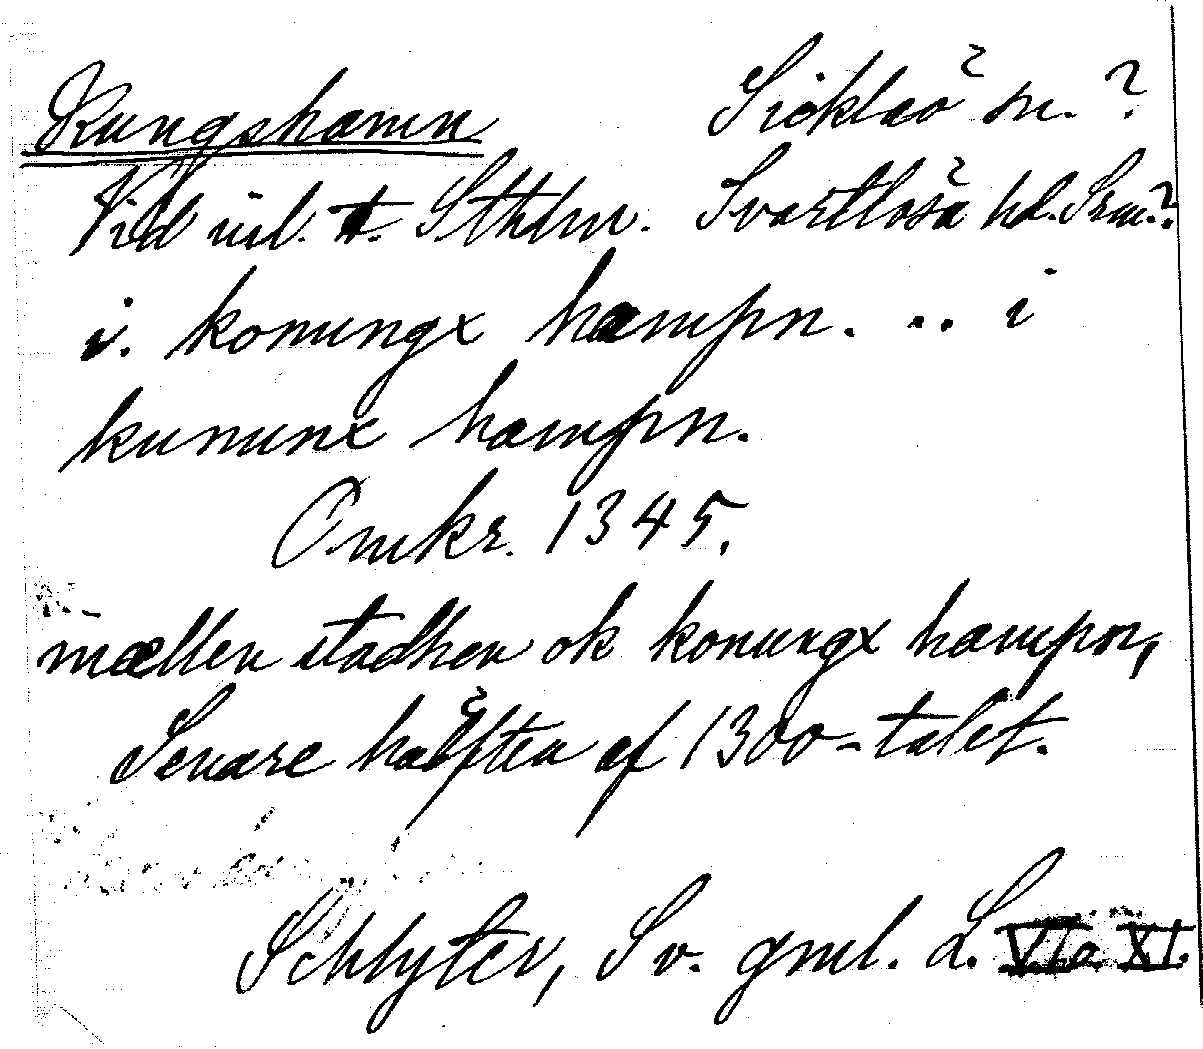 Kungshamn Sicklaö sn. ?
Vid inl. t. Sthlm. Svartlösa hd. Srm.?
i. konungx hampn. .. i
kununx hampn.
Omkr. 1345.
mællen stadhen ok konungx hampn,
Senare hälften af 1300-talet.
Schlyter, Sv. gml. L. VI o. XI.